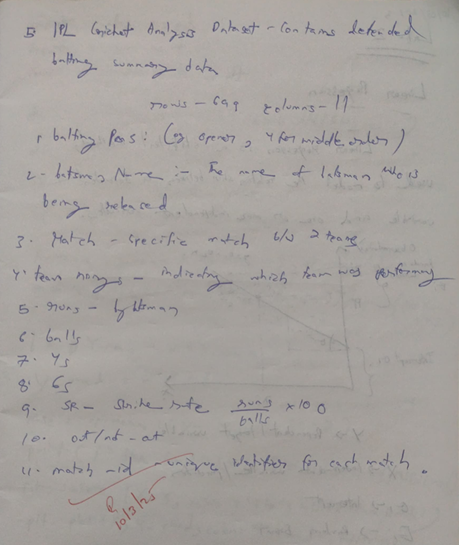 5 IPL Cricket Analysis Dataset - Contains detended
batting summary data
rows - 699 columns - 11
1. batting Pos : (og opener, 4 for middle order)
2. batsmis Name :- The name of batsman who is
being released
3. Match - specific match b/w 2 teams
4. team innings - indicating which team was performing
5. runs - by batsman
6. balls
7. 4s
8. 6s
9. SR - Strike rate runs/balls × 100
10. out/not-out
11. match-id unique identifier for each match.
10/3/25